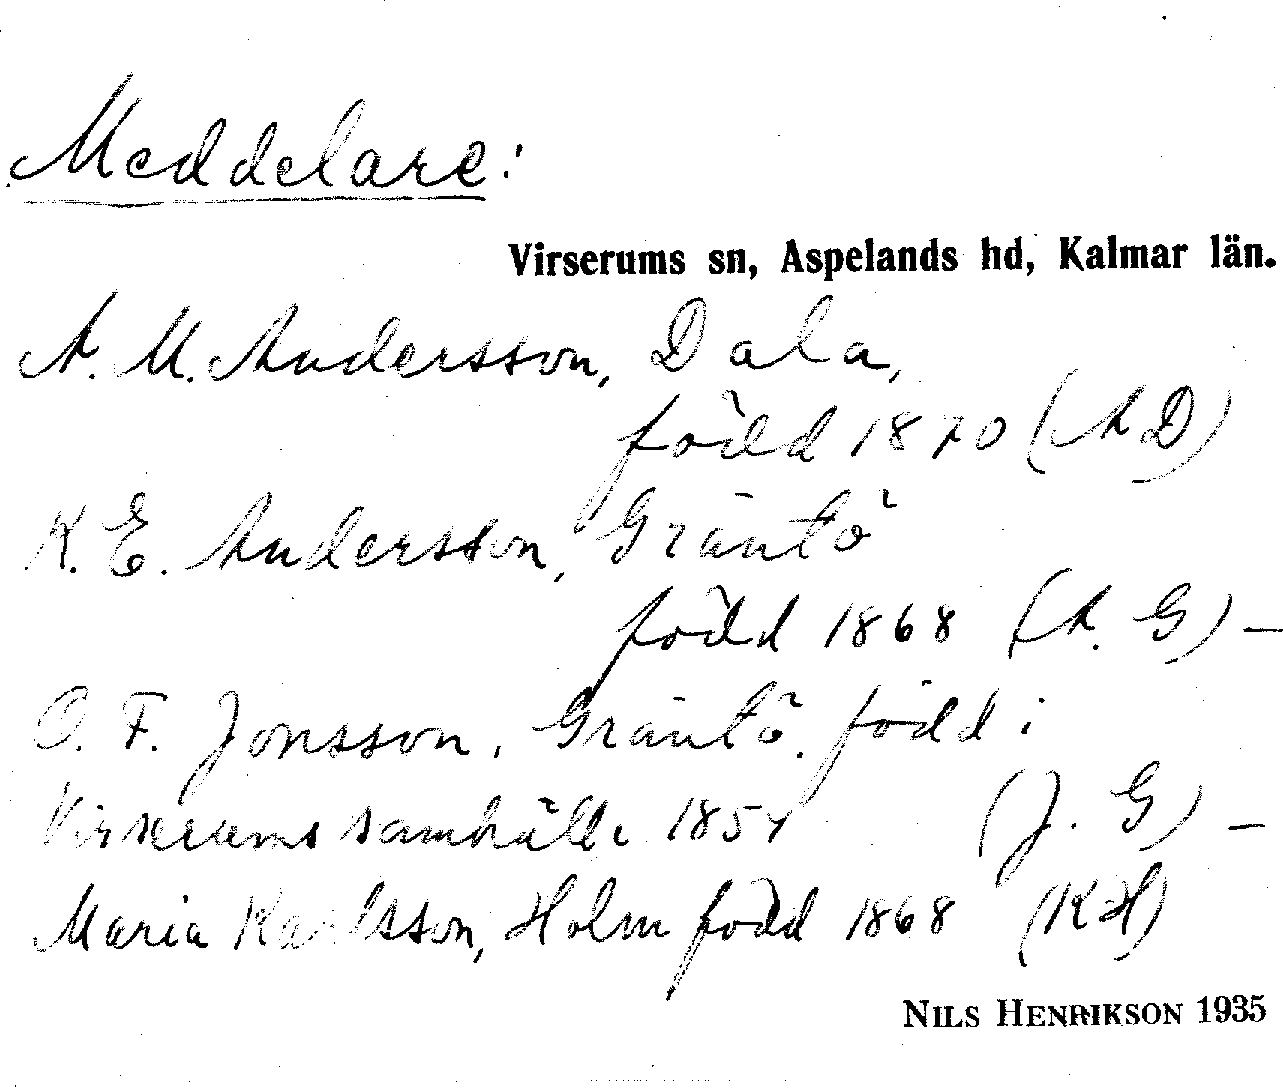 Meddelare:
Virserums sn, Aspelands hd, Kalmar län.
A. M. Andersson, Dala,
född 1870 (A D)
K. E. Andersson, Gräntö
född 1868 (A. G) –
O. F. Jonsson, Gräntö, född i
Virserums samhälle 1854 (J. G) –
Maria Karlsson, Holm född 1868 (KH)
NILS HENRIKSON 1935